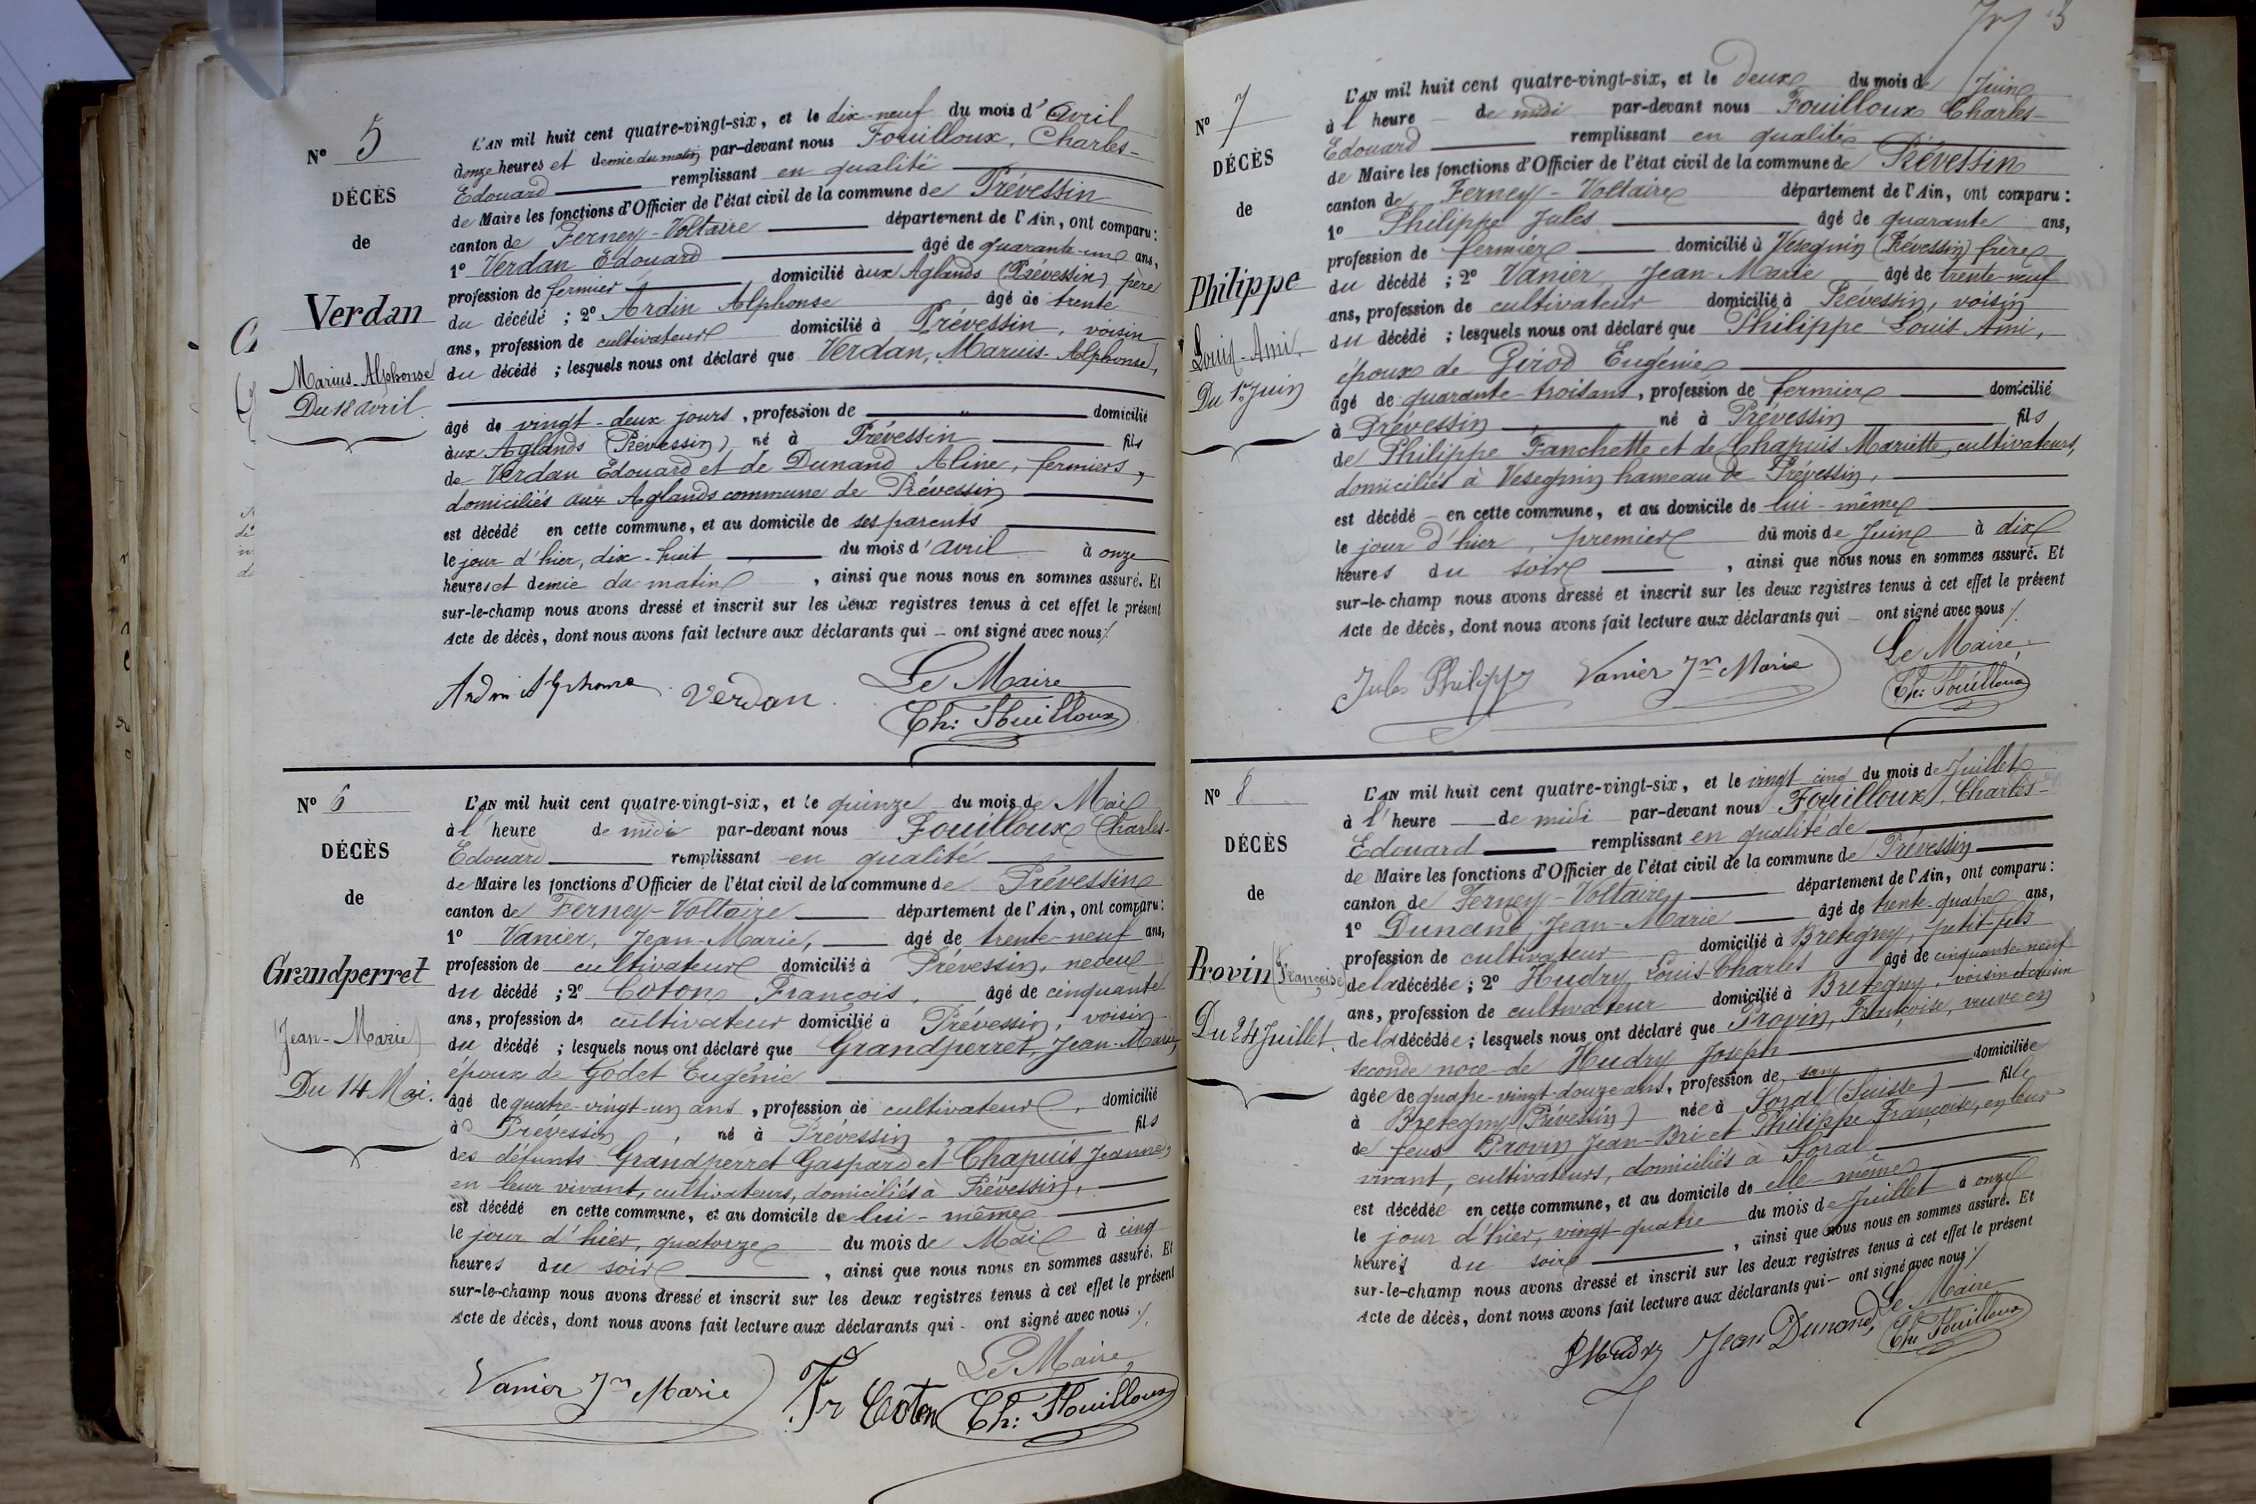 N° 5
DÉCÈS
de
Verdan
Marius-Alphonse
Du 18 avril.
L'AN mil huit cent quatre-vingt-six, et le dix-neuf du mois d'avril
donze heures et demie du matin par-devant nous Fouilloux, Charles-
Edouard remplissant en qualité
de Maire les fonctions d'Officier de l'état civil de la commune de Prévessin
canton de Ferney-Voltaire département de l'Ain, ont comparu :
1° Verdan Edouard âgé de quarante-un ans,
profession de fermier domicilié aux Aglands (Prévessin) père
du décédé ; 2° Ardin Alphonse âgé de trente
ans, profession de cultivateur domicilié à Prévessin, voisin
du décédé ; lesquels nous ont déclaré que Verdan, Marius-Alphonse,
âgé de vingt-deux jours, profession de " domicilié
aux Aglands (Prévessin) né à Prévessin fils
de Verdan Edouard et de Dunand Aline, fermiers,
domiciliés aux Aglands commune de Prévessin
est décédé en cette commune, et au domicile de ses parents
le jour d'hier, dix-huit du mois d'avril à onze
heures et demie du matin, ainsi que nous nous en sommes assuré. Et
sur-le-champ nous avons dressé et inscrit sur les deux registres tenus à cet effet le présent
Acte de décès, dont nous avons fait lecture aux déclarants qui - ont signé avec nous /.
Ardin Alphonse Verdan Le Maire
Ch: Fouilloux
N° 6
DÉCÈS
de
Grandperret
(Jean-Marie)
Du 14 Mai.
L'AN mil huit cent quatre-vingt-six, et le quinze du mois de Mai
à l'heure de midi par-devant nous Fouilloux Charles-
Edouard remplissant en qualité
de Maire les fonctions d'Officier de l'état civil de la commune de Prévessin
canton de Ferney-Voltaire département de l'Ain, ont comparu :
1° Vanier, Jean-Marie, âgé de trente-neuf ans,
profession de cultivateur domicilié à Prévessin, neveu
du décédé ; 2° Coton François, âgé de cinquante
ans, profession de cultivateur domicilié à Prévessin, voisin
du décédé ; lesquels nous ont déclaré que Grandperret, Jean-Marie,
époux de Godet Eugénie
âgé de quatre-vingt-un ans, profession de cultivateur, domicilié
à Prevessin, né à Prévessin, fils
des défunts Grandperret Gaspard et Chapuis Jeanne,
en leur vivant, cultivateurs, domiciliés à Prévessin,
est décédé en cette commune, et au domicile de lui-même
le jour d'hier, quatorze du mois de Mai à cinq
heures du soir, ainsi que nous nous en sommes assuré. Et
sur-le-champ nous avons dressé et inscrit sur les deux registres tenus à cet effet le présent
Acte de décès, dont nous avons fait lecture aux déclarants qui - ont signé avec nous /.
Vanier Jn Marie Fr Coton Le Maire,
Ch: Fouilloux
N° 7
DÉCÈS
de
Philippe
Louis-Ami.
Du 1er Juin
L'AN mil huit cent quatre-vingt-six, et le deux du mois de Juin
à l'heure de midi par-devant nous Fouilloux Charles-
Edouard remplissant en qualité
de Maire les fonctions d'Officier de l'état civil de la commune de Prévessin
canton de Ferney-Voltaire département de l'Ain, ont comparu :
1° Philippe Jules âgé de quarante ans,
profession de fermier domicilié à Vesegnin (Prévessin) frère
du décédé ; 2° Vanier Jean-Marie âgé de trente-neuf
ans, profession de cultivateur domicilié à Prévessin, voisin
du décédé ; lesquels nous ont déclaré que Philippe Louis Ami,
époux de Girod Eugénie
âgé de quarante-trois ans, profession de fermier domicilié
à Prévessin né à Prévessin fils
de Philippe Franchette et de Chapuis Mariette, cultivateurs,
domiciliés à Vesegnin hameau de Prévessin,
est décédé - en cette commune, et au domicile de lui-même
le jour d'hier, premier du mois de Juin à dix
heures du soir, ainsi que nous nous en sommes assuré. Et
sur-le-champ nous avons dressé et inscrit sur les deux registres tenus à cet effet le présent
Acte de décès, dont nous avons fait lecture aux déclarants qui - ont signé avec nous /.
Jules Philippe Vanier Jn Marie Le Maire,
Ch: Fouilloux
N° 8
DÉCÈS
de
Provin (Françoise)
Du 24 Juillet.
L'AN mil huit cent quatre-vingt-six, et le vingt cinq du mois de Juillet
à l'heure de midi par-devant nous Fouilloux, Charles-
Edouard remplissant en qualité de
de Maire les fonctions d'Officier de l'état civil de la commune de Prévessin
canton de Ferney-Voltaire, département de l'Ain, ont comparu :
1° Dunand, Jean-Marie âgé de trente-quatre ans,
profession de cultivateur domicilié à Bretegny, petit-fils
de la décédée ; 2° Hudry Louis Charles âgé de cinquante-neuf
ans, profession de cultivateur domicilié à Bretegny, voisin et cousin
de la décédée ; lesquels nous ont déclaré que Provin, Françoise, veuve en
seconde noce de Hudry Joseph
âgée de quatre-vingt-douze ans, profession de sans domiciliée
à Bretegny (Prévessin) née à Soral (Suisse) fille
de feus Provin Jean-Bri et Philippe Françoise, en leur
vivant, cultivateurs, domiciliés à Soral
est décédée en cette commune, et au domicile de elle-même
le jour d'hier, vingt-quatre du mois de Juillet à onze
heures du soir, ainsi que nous nous en sommes assuré. Et
sur-le-champ nous avons dressé et inscrit sur les deux registres tenus à cet effet le présent
Acte de décès, dont nous avons fait lecture aux déclarants qui - ont signé avec nous /.
LHudry Jean Dunand, Le Maire
Ch: Fouilloux